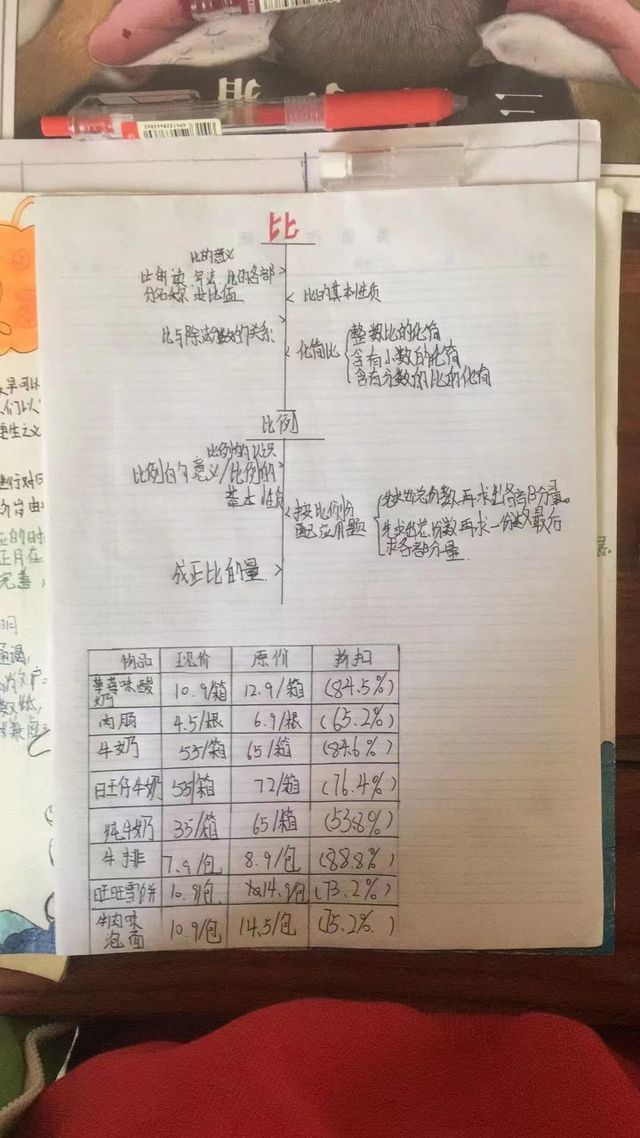 比
比的意义
比的读、写法、比的各部
分名称、求比值
比的基本性质
比与除法分数的关系
化简比
整数比的化简
含有小数的化简
含有分数的比的化简
比例
比例的认识
比例的意义/比例的
基本性质
按比例分
配应用题
先求出总份数,再求出各部分量。
先求出总份数再求一份数最后
求各部分量
成正比的量
物品 现价 原价 折扣
草莓味酸奶 10.9/箱 12.9/箱 (84.5%)
肉肠 4.5/根 6.9/根 (65.2%)
牛奶 55/箱 65/箱 (84.6%)
旺仔牛奶 55/箱 72/箱 (76.4%)
纯牛奶 35/箱 65/箱 (53.8%)
牛排 7.9/包 8.9/包 (88.8%)
旺旺雪饼 10.9/包 14.9/包 (73.2%)
牛肉味泡面 10.9/包 14.5/包 (75.2%)